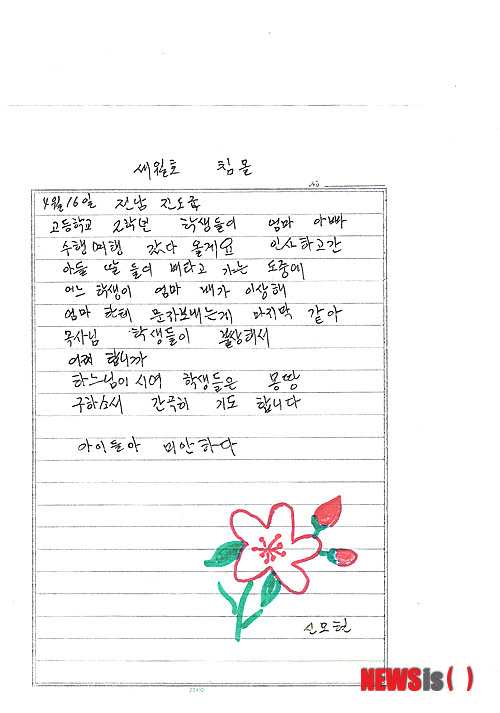 세월호 침몰
No.
4월 16일 전남 진도쪽
고등학교 2학년 학생들이 엄마 아빠
수행여행 갔다 올게요 인사하고간
아들 딸 들이 배타고 가는 도중에
어느 학생이 엄마 배가 이상해
엄마 한테 문자보내는게 마지막 같아
목사님 학생들이 불쌍해서
어찌 합니까
하느님이시여 학생들은 몽땅
구하소서 간곡히 기도 합니다
아이들아 미안하다
NEWSis( )